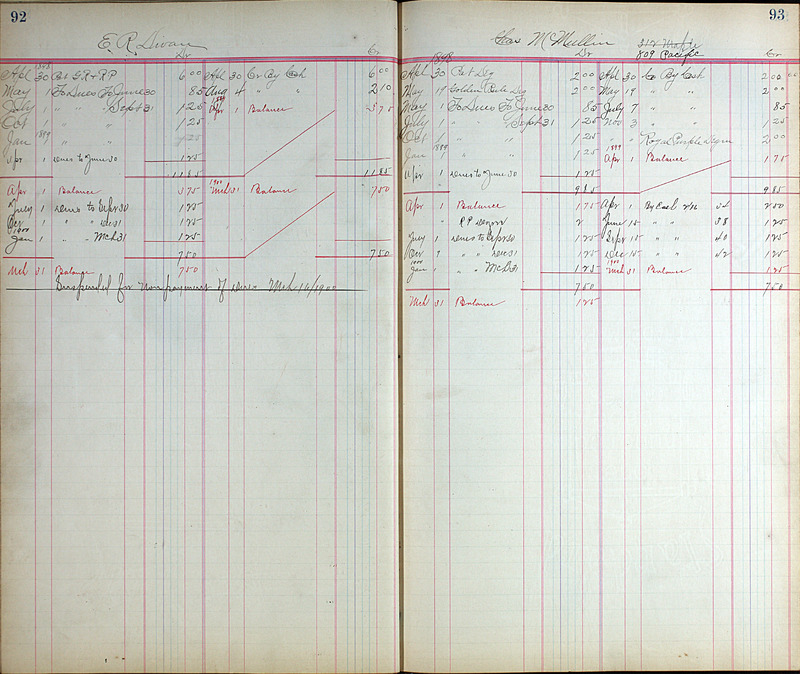 92
E. R.
Dr Cr
1898
Apl 30 Pat G.R + R P 6 00 Apl 30 Cr By Cash 6 00
May 1 To Dues To June 30 85 Aug 4 " " 2 10
July 1 " " Sept 31 1 25 1899 Apr 1 Balance 3 75
Oct 1 " " 1 25
1899
Jan " " 1 25
Apr 1 Dues to June 30 1 25
11 85 11 85
Apr 1 Balance 3 75 1900 Mch 31 Balance 7 50
July 1 Dues to Sepr 30 1 25
Oct 1 " " Dec 31 1 25
1900
Jan 1 " " Mch 31 1 25
7 50 7 50
Mch 31 Balance 7 50
Suspended for Non payment of dues Mch 14/1900
93
Chas McMullin 312 Maple
809 Pacific
Dr Cr
1898
Apl 30 Pat Deg 2 00 Apl 30 Co By Cash 2 00
May 19 Golden Rule Deg 2 00 May 19 " " 2 00
May 1 To Dues To June 30 85 July 7 " " 85
July 1 " " Sept 31 1 25 Nov 3 " " 1 25
Oct 1 " " 1 25 Royal Purple Degree 2 00
1899
Jan " " 1 25 1899 Apr 1 Balance 1 75
Apr 1 Dues to June 30 1 25
9 85 9 85
Apr 1 Balance 1 75 Apr 1 By Cash 34 2 00
R P Degree 2 June 15 " " 38 1 25
July 1 Dues to Sepr 30 1 25 Sepr 15 " " 40 1 25
Oct 1 " " Dec 31 1 25 Dec 15 " " 42 1 25
1900
Jan 1 " " Mch 31 1 25 1900 Mch 31 Balance 1 25
7 50 7 50
Mch 31 Balance 1 25